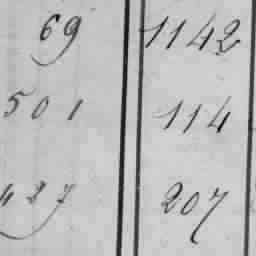 69 1142
501 114
427 207